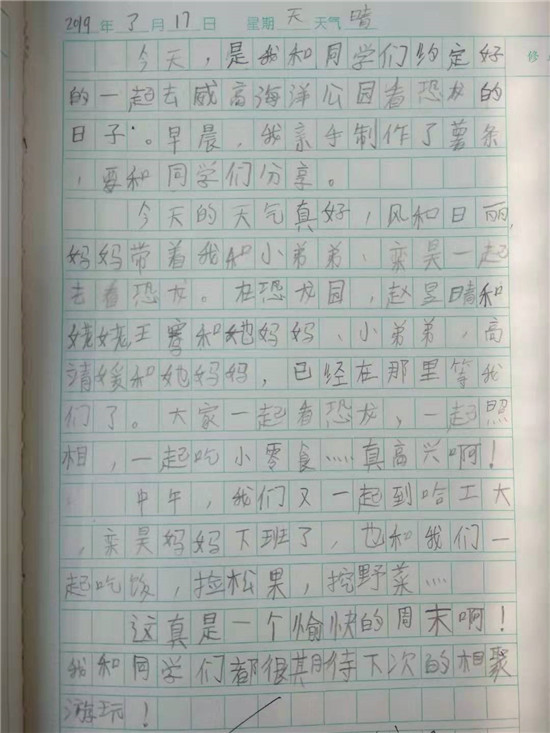 2019年3月17日 星期天 天气晴
修
今天，是我和同学们约定好
的一起去威高海洋公园看恐龙的
日子。早晨，我亲手制作了薯条
，要和同学们分享。
今天的天气真好，风和日丽，
妈妈带着我和小弟弟、栾昊一起
去看恐龙。在恐龙园，赵昱晴和
姥姥王骞和她妈妈、小弟弟，高
靖媛和她妈妈，已经在那里等我
们了。大家一起看恐龙，一起照
相，一起吃小零食……真高兴啊！
中午，我们又一起到哈工大
，栾昊妈妈下班了，也和我们一
起吃饭，捡松果，挖野菜……
这真是一个愉快的周末啊！
我和同学们都很期待下次的相聚
游玩！